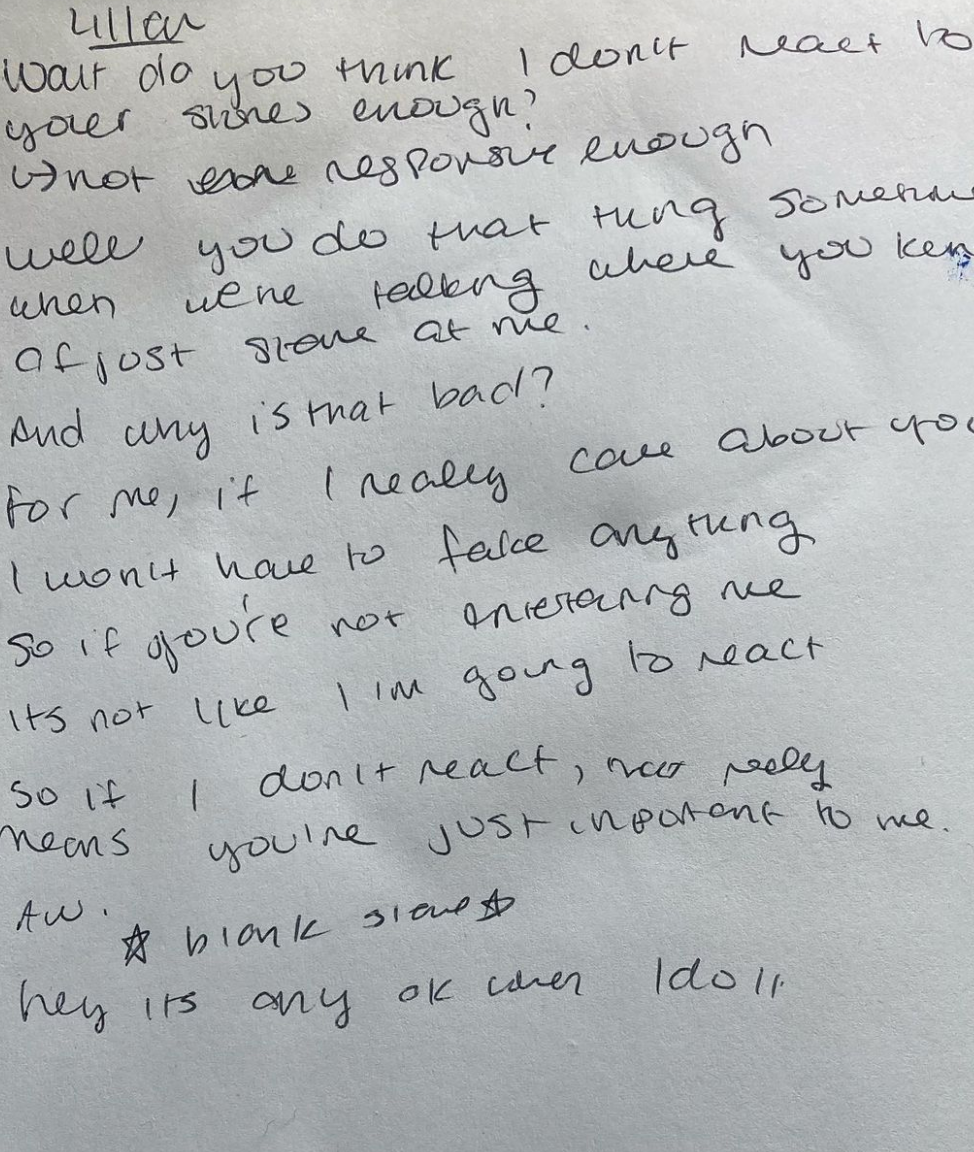 Lillan
Wait do you think I don't react to
your stories enough?
↳ not responsive enough
well you do that thing
when we're talking where you
of just stare at me.
And why is that bad?
for me, if I really care about you
I won't have to fake anything
So if you're not interesting me
Its not like I im going to react
So if I don't react, really
means you're just important to me.
AW.
☆ blank stare ☆
hey its only ok when I do it